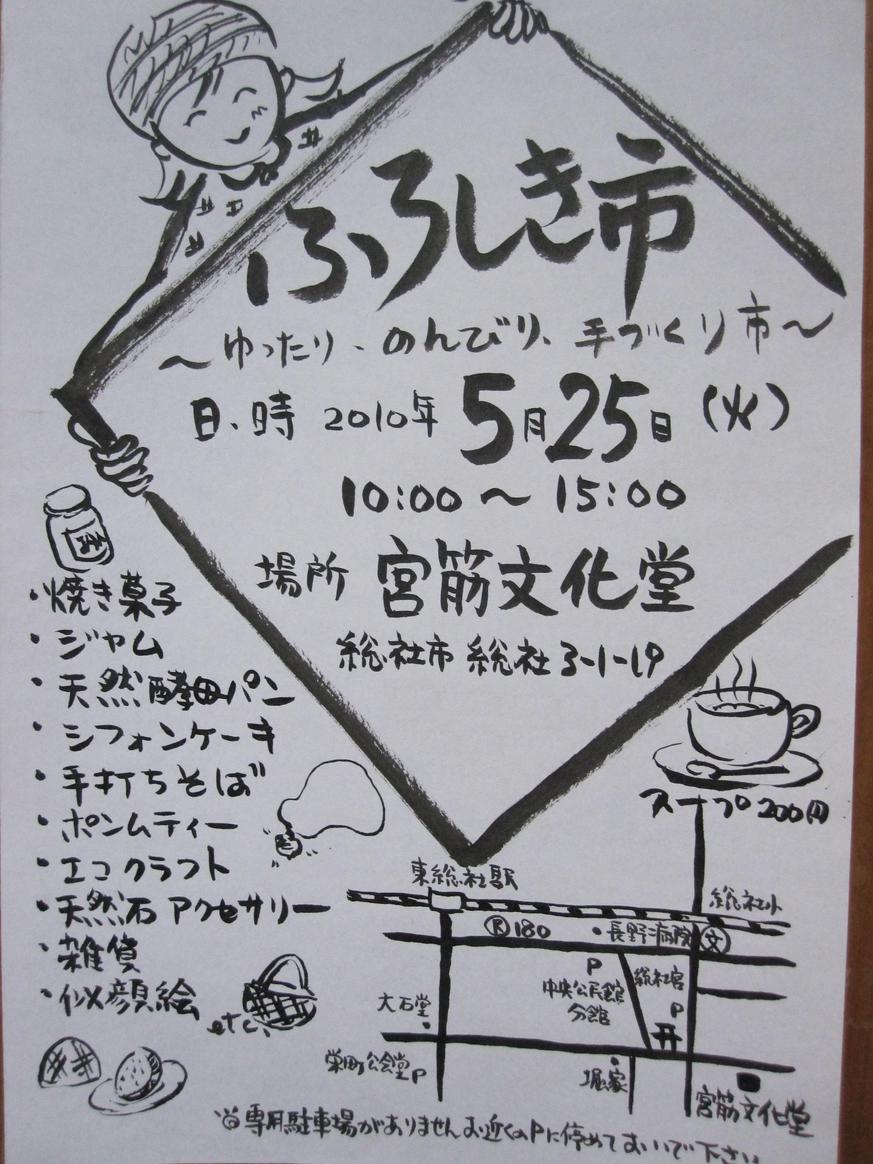 ふろしき市
〜ゆったり、のんびり、手づくり市〜
日、時 2010年 5月25日(火)
10:00〜15:00
場所 宮筋文化堂
総社市 総社3-1-19
・焼き菓子
・ジャム
・天然酵母パン
・シフォンケーキ
・手打ちそば
・ポンムティー
・エコクラフト
・天然石アクセサリー
・雑貨
・似顔絵
etc.
スープ200円
東総社駅
総社小
Ⓡ180
・長野病院
文
P
中央公民館
分館
総社宮
P
大石堂
栄町公会堂P
堀家
宮筋文化堂
専用駐車場がありませんお近くのPに停めておいで下さい